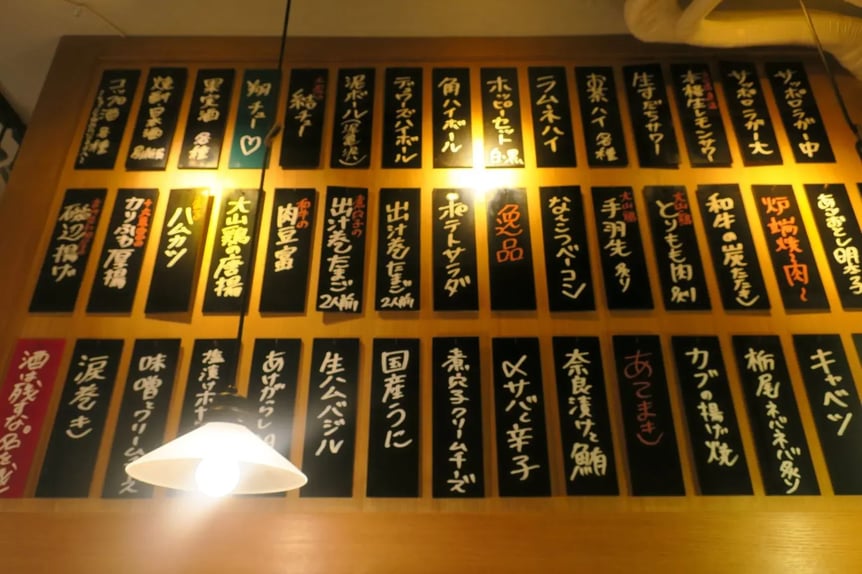 サッポロラガー中
サッポロラガー大
本格生レモンサワー
生すだちサワー
お茶ハイ 各種
ラムネハイ
ホッピーセット 白・黒
角ハイボール
デュワーズハイボール
泥ボール
結チュー
翔チュー♡
果実酒 各種
各種
コップ酒 各種
ある意味明太子
炉端焼〜肉〜
和牛の炭たたき
大山鶏 とりもも肉
大山鶏 手羽先 炙り
なんこつベーコン
逸品
ポテトサラダ
出汁巻たまご 2人前
出汁巻たまご 2人前
肉豆富
大山鶏の唐揚
ハムカツ
カリふわ厚揚
磯辺揚げ
キャベツ
栃尾ネバネバ炙り
カブの揚げ焼
あてまき
奈良漬けと鮪
〆サバと辛子
煮穴子クリームチーズ
国産うに
生ハムバジル
塩漬け
味噌とクリーム
涙巻き
酒は残すな。